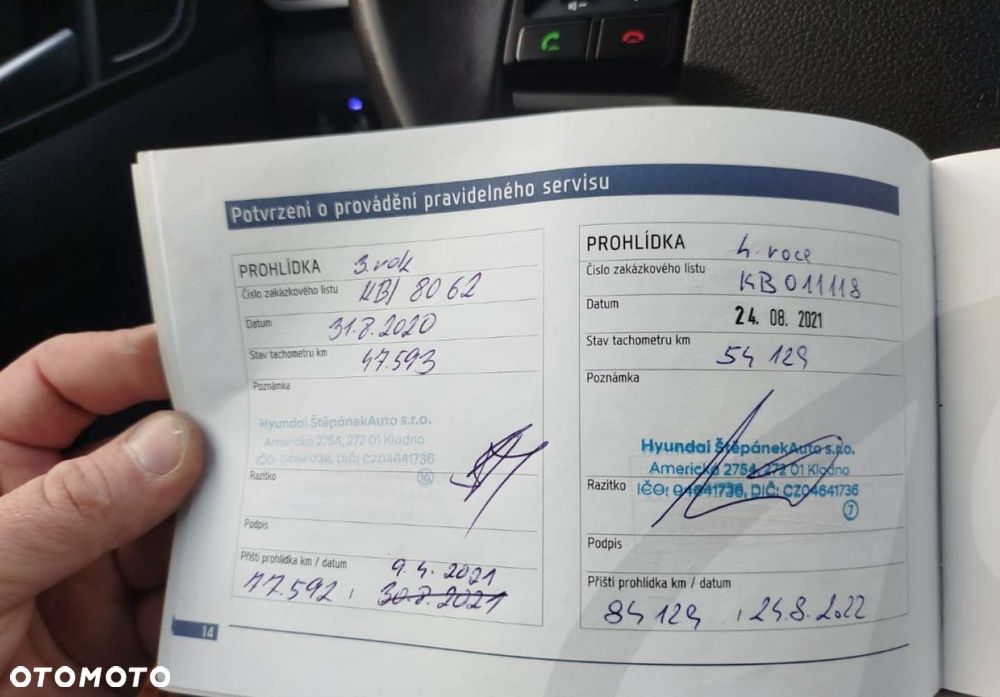 Potvrzení o provádění pravidelného servisu
PROHLÍDKA 3. rok
Číslo zakázkového listu KB1 8062
Datum 31.8.2020
Stav tachometru km 47.593
Poznámka
Hyundai ŠtěpánekAuto s.r.o.
Americká 2754, 272 01 Kladno
IČO: 04641736, DIČ: CZ04641736
10
Razítko
Podpis
Příští prohlídka km / datum 9.4.2021
77.592 , 30.8.2021
14
PROHLÍDKA 4. roce
Číslo zakázkového listu KB011118
Datum 24. 08. 2021
Stav tachometru km 54 129
Poznámka
Hyundai ŠtěpánekAuto s.r.o.
Americká 2754, 272 01 Kladno
Razítko IČO: 04641736, DIČ: CZ04641736
7
Podpis
Příští prohlídka km / datum
84 129 , 24.8.2022
OTOMOTO